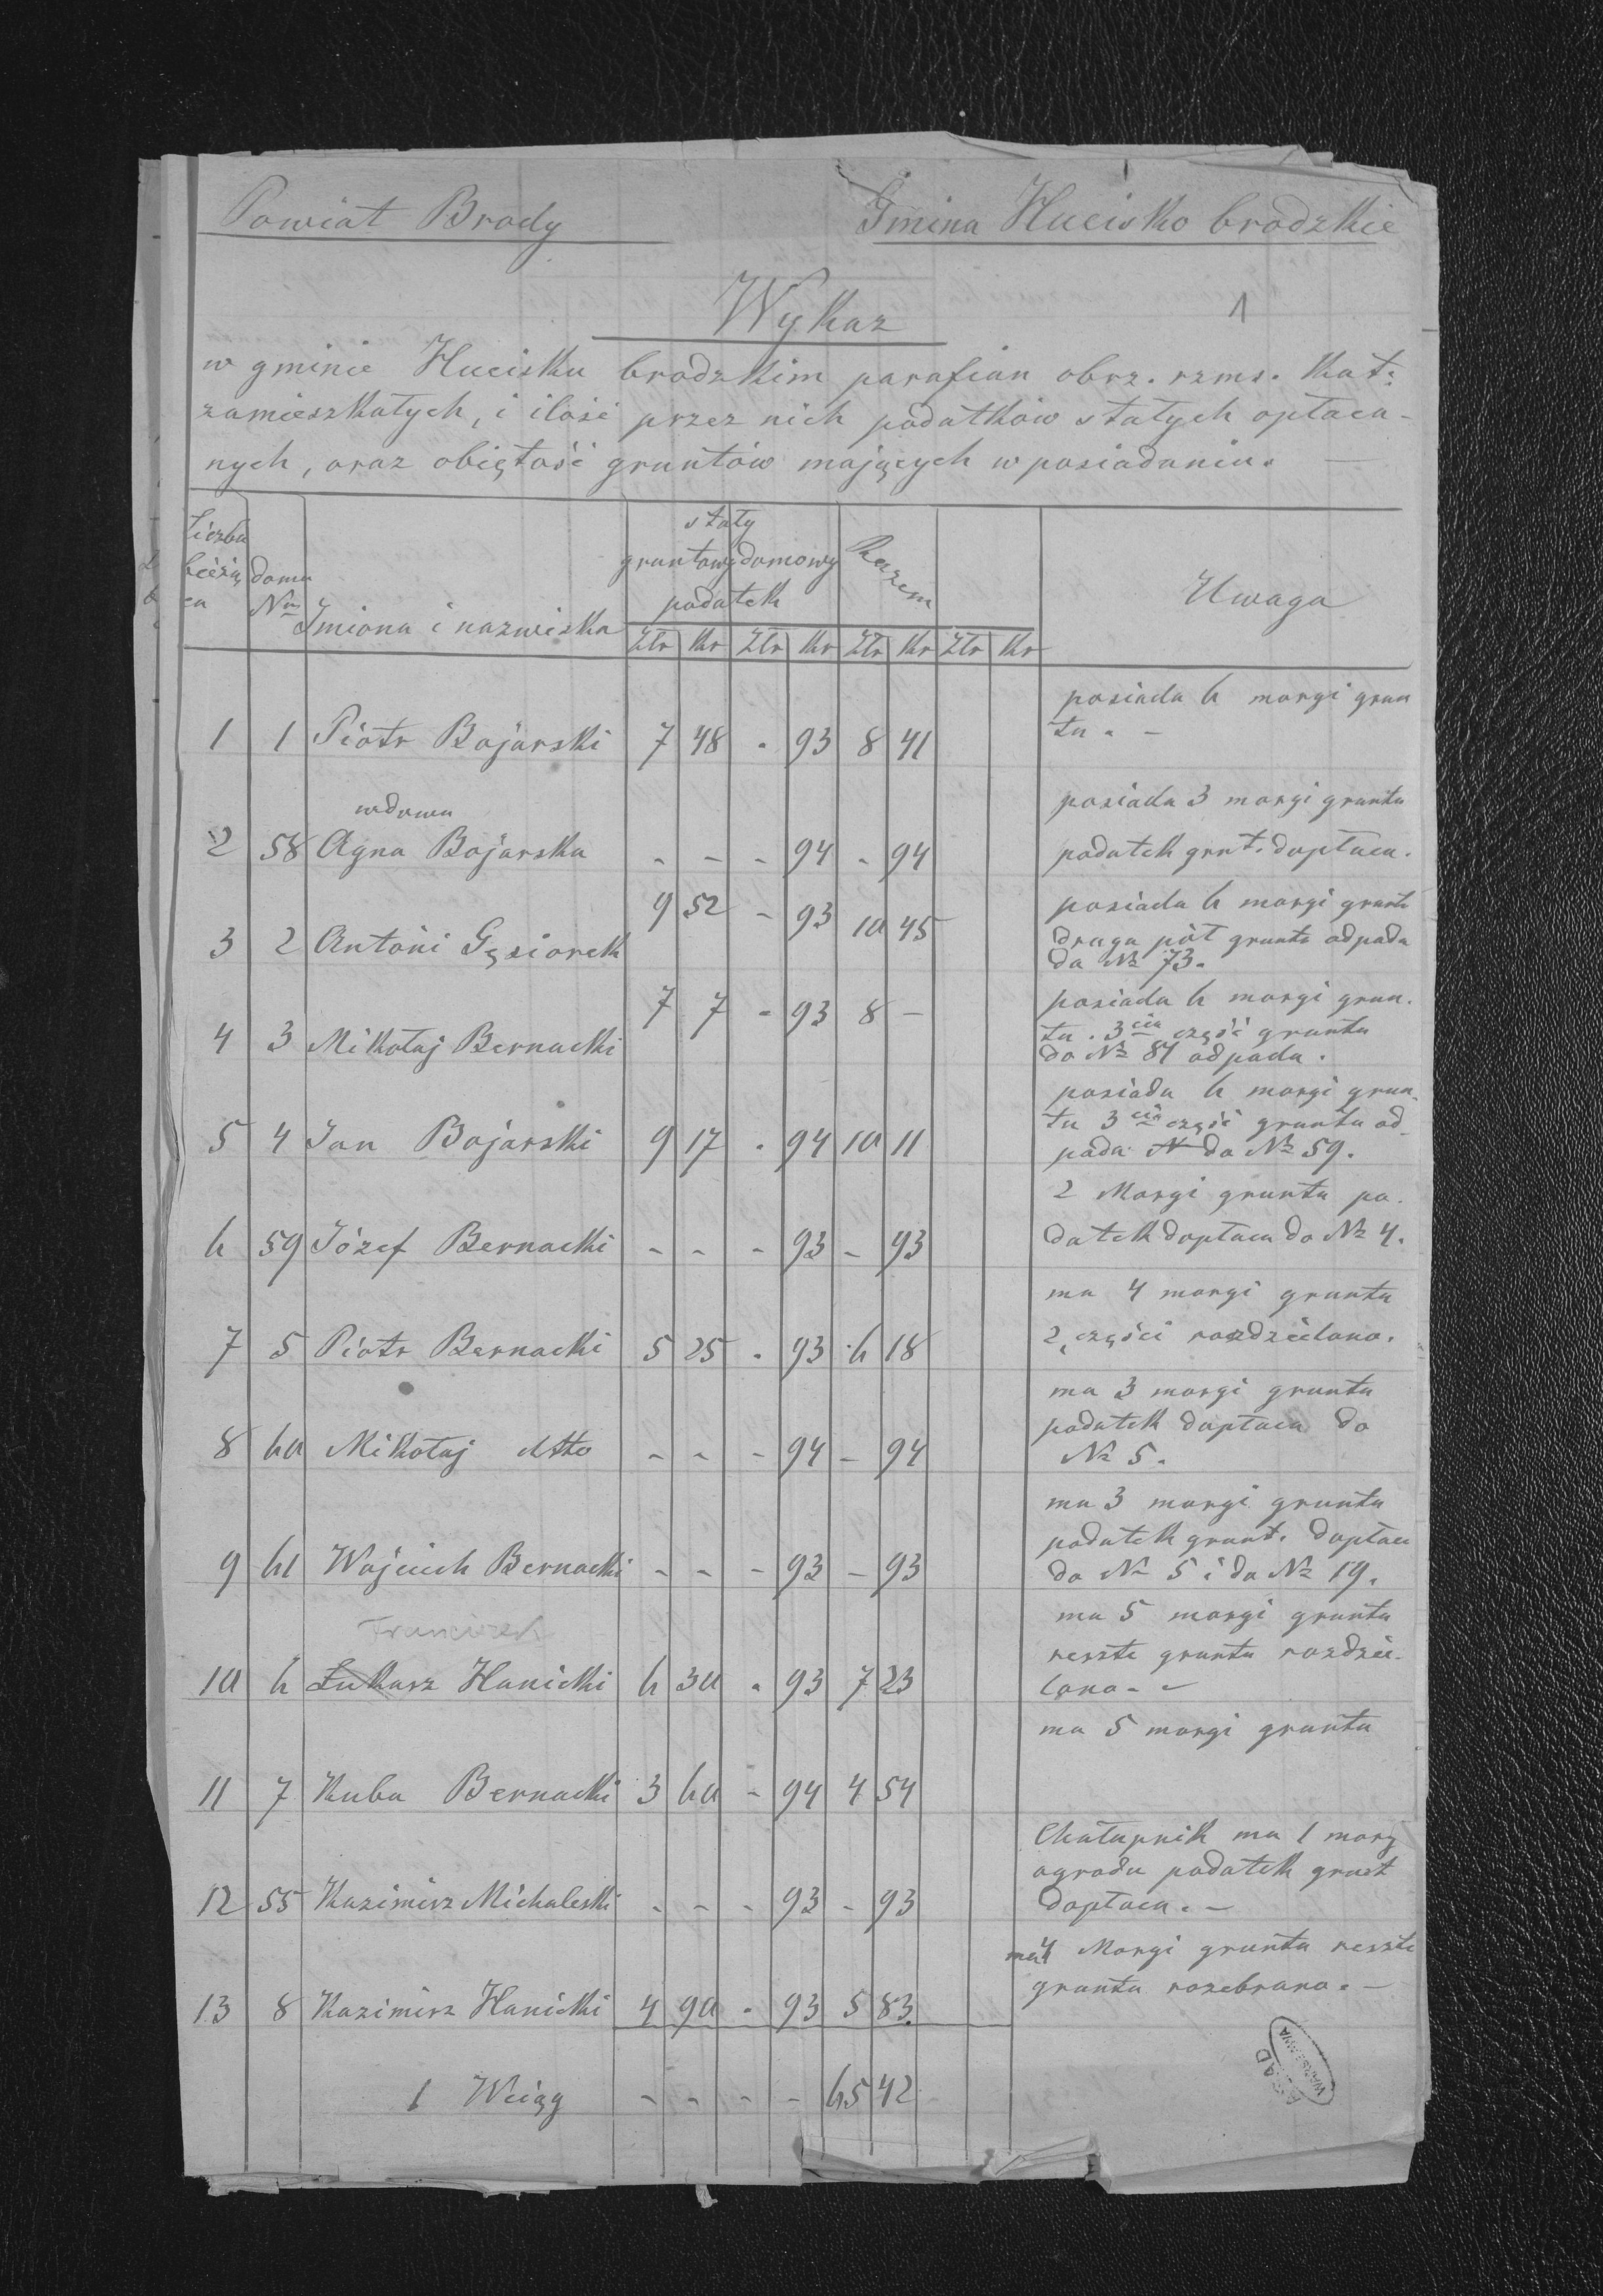 Powiat Brody
Gmina Hucisko brodzkie
1
Wykaz
w gminie Hucisku brodzkim parafian obrz. rzms. Kat:
zamieszkałych, i ilość przez nich podatków stałych opłaca-
nych, oraz obiętość gruntów mających w posiadaniu. —
Liczba bieżąca | domu Nrs | Imiona i nazwiska | stały gruntowy domowy podatek | Razem | Uwaga
Złr | Kr | Złr | Kr | Złr | Kr | Złr | Kr
posiada 6 morgi grun
1 | 1 | Piotr Bojarski | 7 | 48 | - | 93 | 8 | 41 | tu. —
wdowa | posiada 3 morgi gruntu
2 | 58 | Agna Bojarska | - | - | - | 94 | - | 94 | podatek grnt. dopłaca.
posiada 6 morgi grunt
3 | 2 | Antoni Gąsiorek | 9 | 52 | - | 93 | 10 | 45 | druga pół gruntu odpada
do № 73.
posiada 6 morgi grun.
4 | 3 | Mikołaj Bernacki | 7 | 7 | - | 93 | 8 | - | tu. 3cia część gruntu
do № 81 odpada.
posiada 6 morgi grun-
tu 3cia część gruntu od-
5 | 4 | Jan Bojarski | 9 | 17 | - | 94 | 10 | 11 | pada N do № 59.
2 Morgi gruntu po.
6 | 59 | Józef Bernacki | - | - | - | 93 | - | 93 | datek dopłaca do № 4.
ma 4 morgi gruntu
7 | 5 | Piotr Bernacki | 5 | 25 | - | 93 | 6 | 18 | 2 części rozdzielono.
ma 3 morgi gruntu
podatek dopłaca do
8 | 60 | Mikołaj dtto | - | - | - | 94 | - | 94 | № 5.
ma 3 morgi gruntu
podatek grunt. dopłaca
9 | 61 | Wojciech Bernacki | - | - | - | 93 | - | 93 | do № 5 i do № 19.
Franciszek | ma 5 morgi gruntu
reszte gruntu rozdzie-
10 | 6 | Łukasz Hanicki | 6 | 30 | - | 93 | 7 | 23 | lono. -
ma 5 morgi gruntu
11 | 7 | Kuba Bernacki | 3 | 60 | - | 94 | 4 | 54
Chałupnik ma 1 morg
ogrodu podatek grunt
12 | 55 | Kazimirz Michaleski | - | - | - | 93 | - | 93 | dopłaca. —
ma 4 Morgi gruntu reszte
gruntu rozebrano. —
13 | 8 | Kazimirz Hanicki | 4 | 90 | - | 93 | 5 | 83.
1 Weiąg | - | - | - | - | 65 | 42